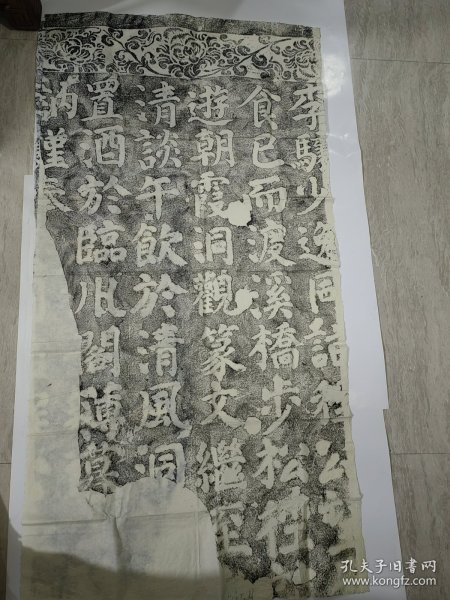 李駿少逸同詣
食已而渡溪橋步松
遊朝霞洞觀篆文繼至
清談午飲於清風洞
置酒於臨水閣薄莫
孔夫子旧书网
www.kongfz.com